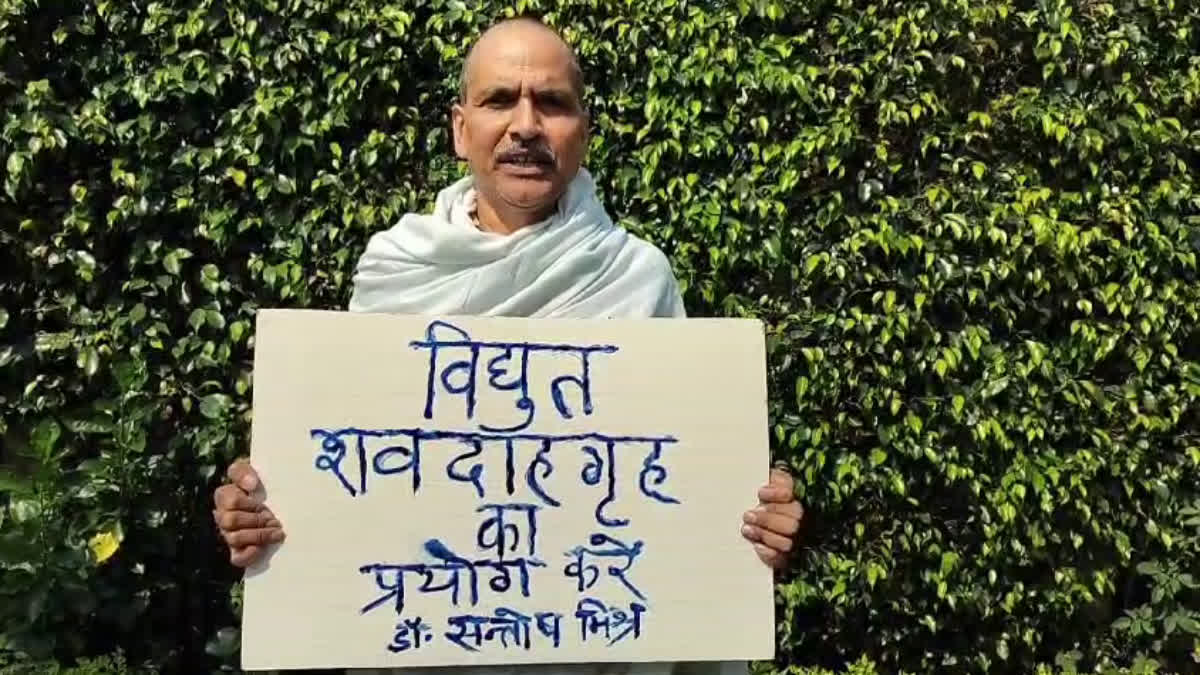 विद्युत
शवदाहगृह
का
प्रयोग करें
डॉ. सन्तोष मिश्र